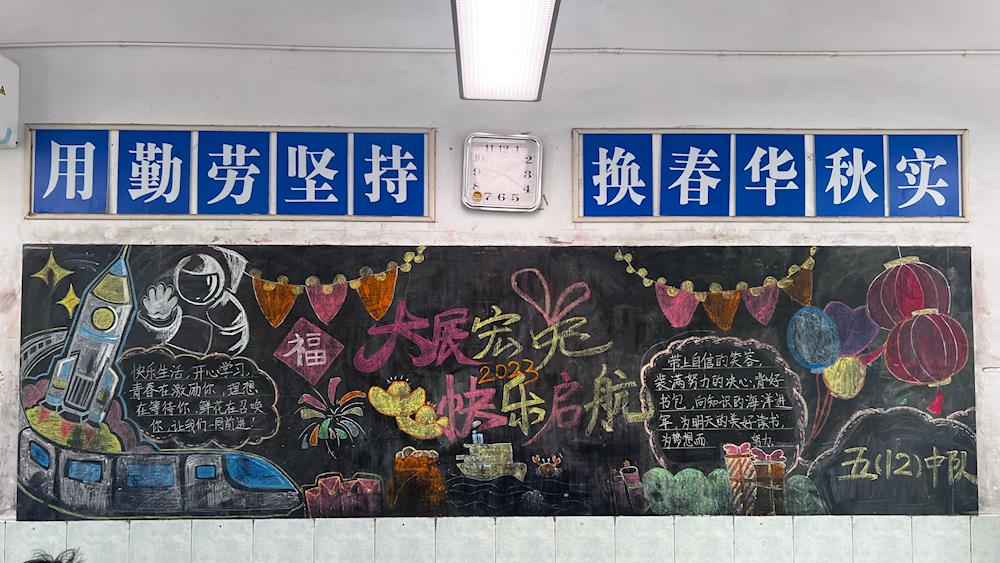 用勤劳坚持
换春华秋实
福
大展宏兔
2023
快乐启航
快乐生活，开心学习，
青春在激励你，理想
在等待你，鲜花在召唤
你，让我们一同前进！
带上自信的笑容，
装满努力的决心，背好
书包，向知识的海洋进
军，为明天的美好读书，
为梦想而 努力
五(12)中队